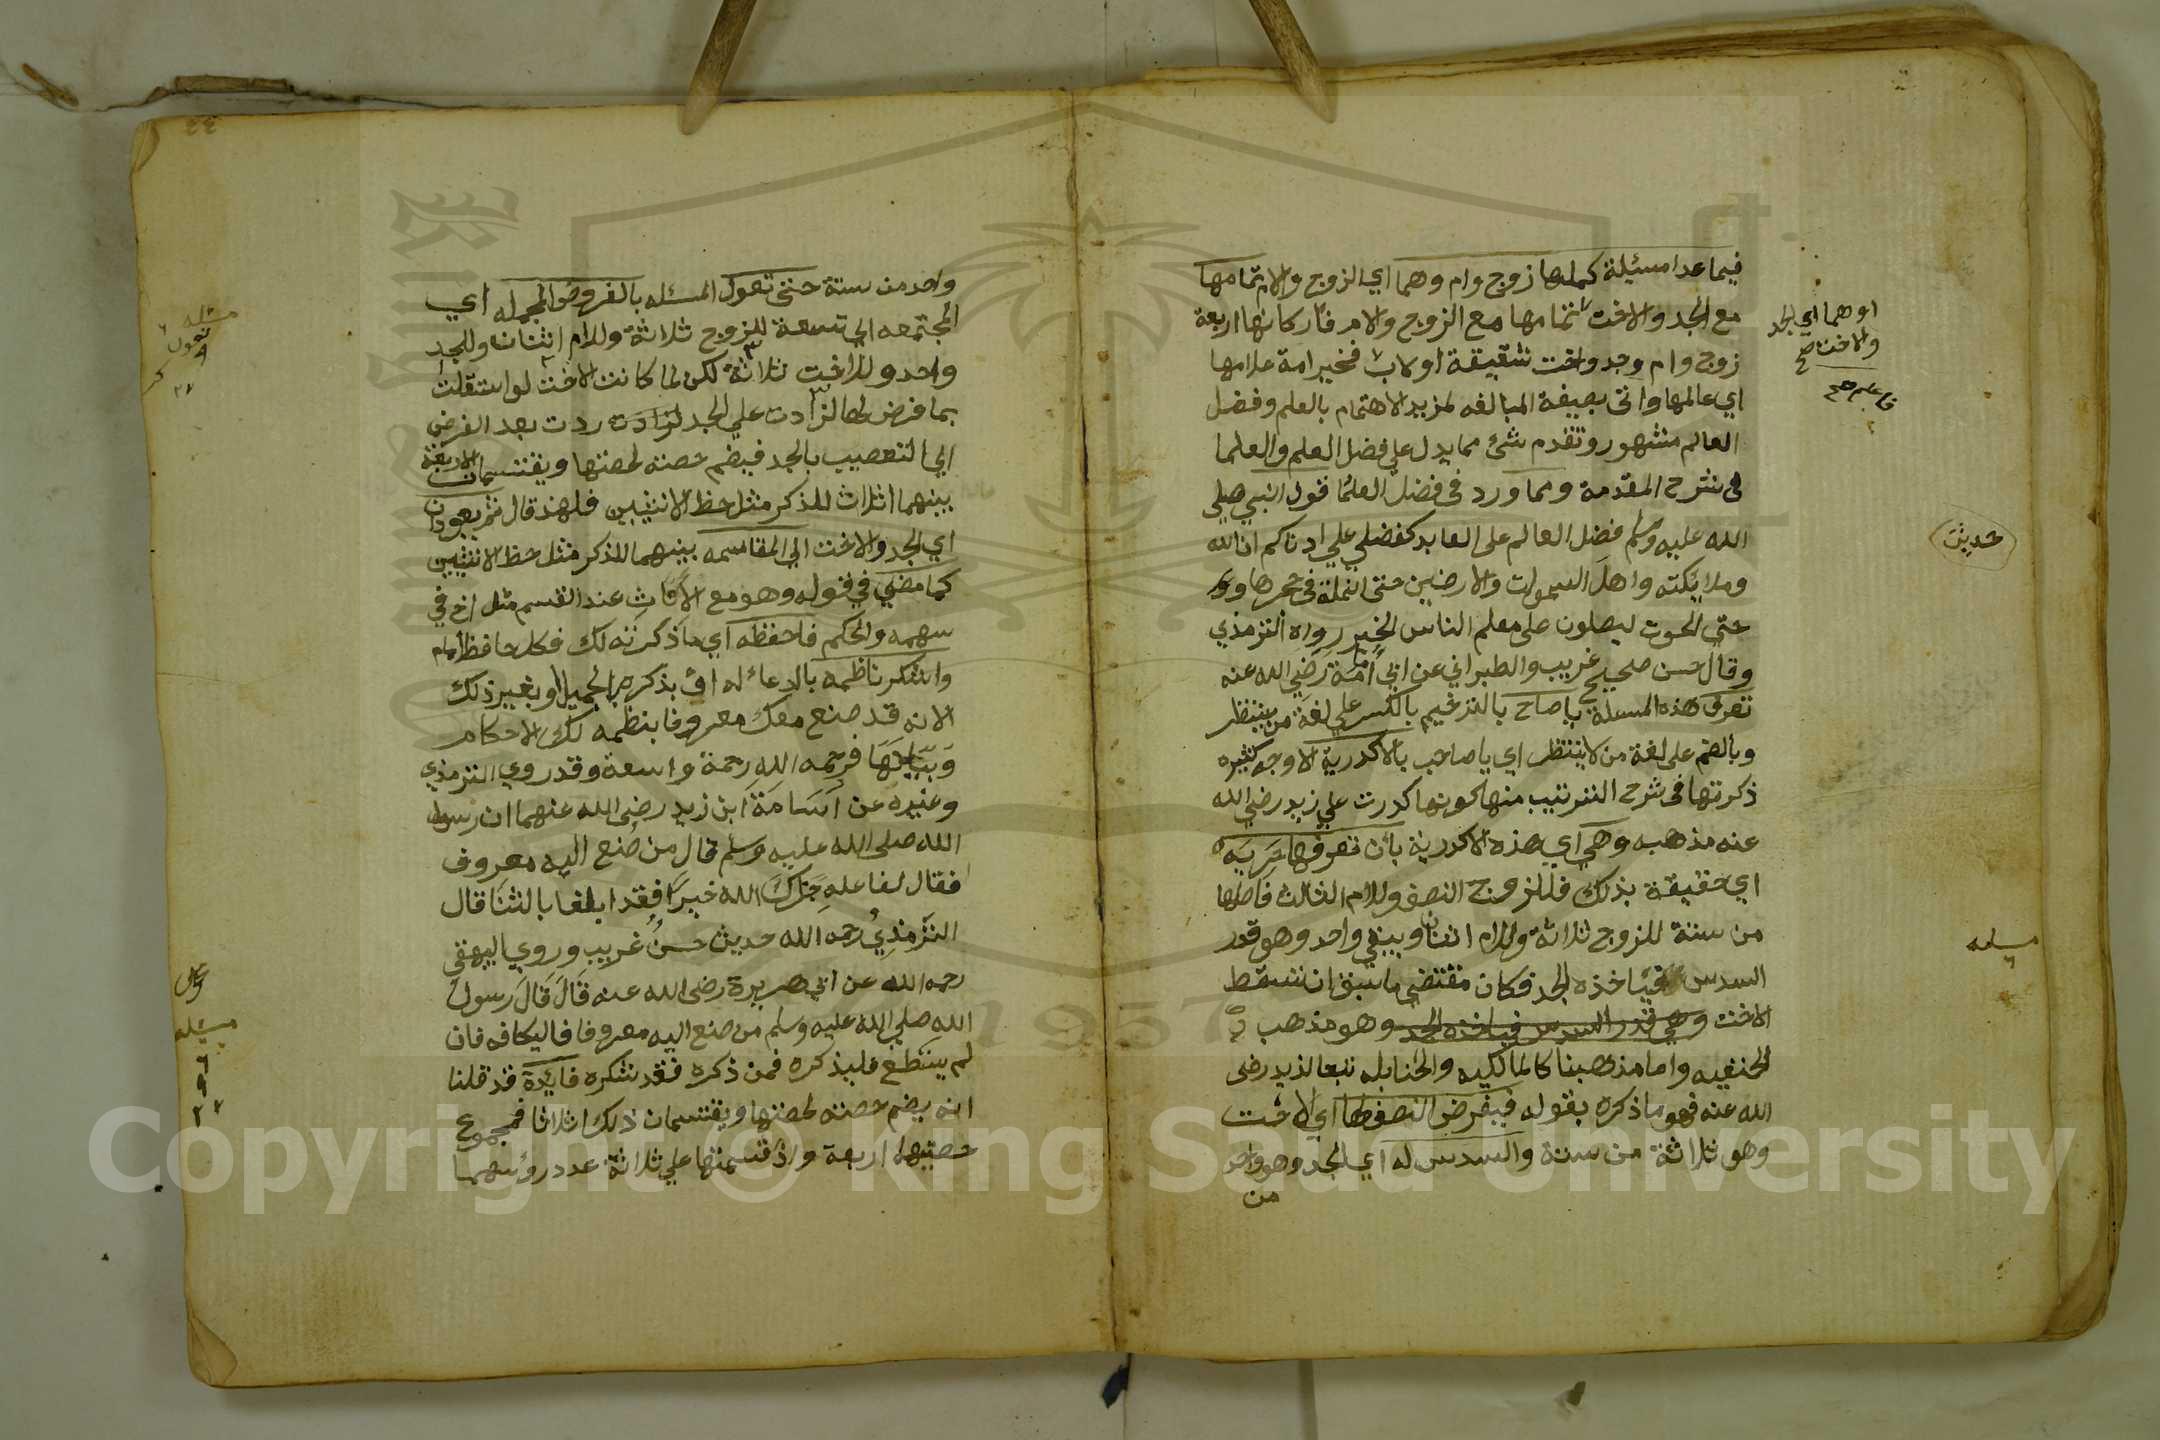 فيما عدا مسئلة كملها زوج وام وهما اي الزوج والام تمامها
مع الجد والاخت تمامها مع الزوج والام فاركانها اربعة
زوج وام وجد واخت شقيقة او لاب فخير امة علامها
اي عالمها واتى بصيغة المبالغه لمزيد الاهتمام بالعلم وفضل
العالم مشهور وتقدم شئ مما يدل على فضل العلم والعلما
في شرح المقدمة ومما ورد في فضل العلما قول النبي صلى
الله عليه وسلم فضل العالم على العابد كفضلي علي ادناكم ان الله
وملايكته واهل السموات والارضين حتى النملة في حجرها و
حتي الحوت ليصلون على معلم الناس الخير رواه الترمذي
وقال حسن صحيح غريب والطبراني عن ابي امامة رضي الله عنه
تعرف هذه المسئلة يا صاح بالترخيم بالكسر علي لغة من ينتظر
وبالضم على لغة من لا ينتظر اي يا صاحب بالاكدرية لاوجه كثيره
ذكرتها في شرح الترتيب منها كونها كدرت علي زيد رضي الله
عنه مذهبه وهي اي هذه الاكدرية بان تعرفها حريه
اي حقيقة بذلك فللزوج النصف وللام الثالث فاصلها
من ستة للزوج ثلاثة وللام اثنان ويبقي واحد وهو قدر
السدس فياخذه الجد فكان مقتضي ما سبق ان تسقط
الاخت وهي قدر السدس فياخذه الجد وهو مذهب
الحنفيه واما مذهبنا كالمالكيه والحنابله تبعا لزيد رضى
الله عنه فهو ما ذكره بقوله فيفرض النصف لها اي لاخت
وهو ثلاثة من ستة والسدس له اي لجد وهو واحد
من
او هما اي الجد
والاخت صح
فاعلم صح
حديث
مسئله
٦
٤٤
واحد من ستة حتى تعول المسئله بالفروض المجمله اي
المجتمعه الي تسعة للزوج ثلاثة وللام اثنان وللجد
واحد وللاخت ثلاثة لكن لما كانت الاخت لو استقلت
بما فرض لها لزادت علي الجد ردت بعد الفرض
الي التعصيب بالجد فيضم حصته لحصتها ويقتسمان الاربعة
بينهما اثلاث للذكر مثل حظ الانثيين فلهذ قال ثم يعودان
اي الجد والاخت الي المقاسمه بينهما للذكر مثل حظ الانثيين
كما مضى في قوله وهو مع الاناث عند القسم مثل اخ في
سهمه والحكم فاحفظه اي ما ذكرته لك فكل حافظ امام
واشكر ناظمه بالدعاء له او بذكره بالجميل او بغير ذلك
لانه قد صنع معك معروفا بنظمه لك الاحكام
وبيانها فرحمه الله رحمة واسعة وقد روي الترمذي
وغيره عن اسامة ابن زيد رضى الله عنهما ان رسول
الله صلى الله عليه وسلم قال من صنع اليه معروف
فقال لفاعله جزاك الله خيرا فقد ابلغا بالثنا قال
الترمذي رحمه الله حديث حسن غريب وروي البيهقي
رحمه الله عن ابي هريرة رضى الله عنه قال قال رسول
الله صلي الله عليه وسلم من صنع اليه معروفا فاليكافه فان
لم يستطع فليذكره فمن ذكره فقد شكره فايدة قد قلنا
انه يضم حصته لحصتها ويقتسمان ذلك اثلاثا فمجموع
حصتيهما اربعة واذ قسمتها علي ثلاثة عدد رؤسهما
مسئله ٦
تعول
٩
٢٧
مسئله
٦
٩
٢٧